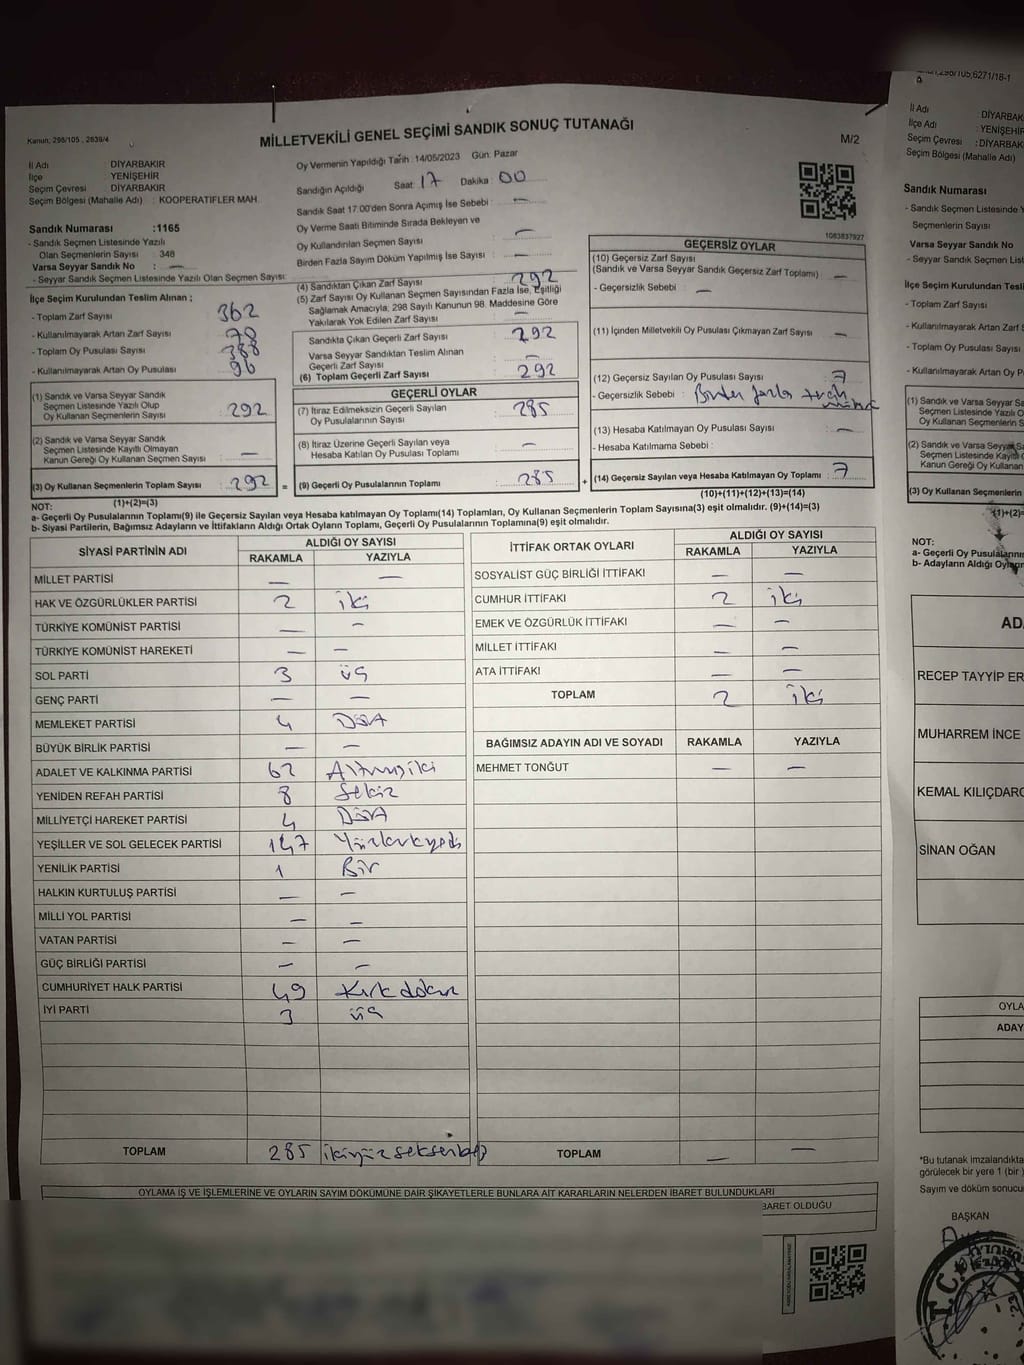 Kanun; 298/105, 2839/4
MİLLETVEKİLİ GENEL SEÇİMİ SANDIK SONUÇ TUTANAĞI
M/2
İl Adı : DİYARBAKIR
İlçe : YENİŞEHİR
Seçim Çevresi : DİYARBAKIR
Seçim Bölgesi (Mahalle Adı) : KOOPERATİFLER MAH.
Oy Vermenin Yapıldığı Tarih :14/05/2023 Gün: Pazar
Sandığın Açıldığı Saat: 17 Dakika: 00
Sandık Saat 17:00'den Sonra Açımış İse Sebebi : —
Oy Verme Saati Bitiminde Sırada Bekleyen ve
Oy Kullandırılan Seçmen Sayısı —
Birden Fazla Sayım Döküm Yapılmış İse Sayısı : —
Sandık Numarası :1165
- Sandık Seçmen Listesinde Yazılı
Olan Seçmenlerin Sayısı : 348
Varsa Seyyar Sandık No : —
- Seyyar Sandık Seçmen Listesinde Yazılı Olan Seçmen Sayısı:
İlçe Seçim Kurulundan Teslim Alınan ;
- Toplam Zarf Sayısı 362
- Kullanılmayarak Artan Zarf Sayısı 70
- Toplam Oy Pusulası Sayısı 388
- Kullanılmayarak Artan Oy Pusulası 96
(1) Sandık ve Varsa Seyyar Sandık
Seçmen Listesinde Yazılı Olup
Oy Kullanan Seçmenlerin Sayısı 292
(2) Sandık ve Varsa Seyyar Sandık
Seçmen Listesinde Kayıtlı Olmayan
Kanun Gereği Oy Kullanan Seçmen Sayısı —
(3) Oy Kullanan Seçmenlerin Toplam Sayısı : 292 =
(1)+(2)=(3)
(4) Sandıktan Çıkan Zarf Sayısı 292
(5) Zarf Sayısı Oy Kullanan Seçmen Sayısından Fazla İse, Eşitliği
Sağlamak Amacıyla; 298 Sayılı Kanunun 98. Maddesine Göre
Yakılarak Yok Edilen Zarf Sayısı —
Sandıkta Çıkan Geçerli Zarf Sayısı 292
Varsa Seyyar Sandıktan Teslim Alınan
Geçerli Zarf Sayısı —
(6) Toplam Geçerli Zarf Sayısı 292
GEÇERLİ OYLAR
(7) İtiraz Edilmeksizin Geçerli Sayılan
Oy Pusulalarının Sayısı 285
(8) İtiraz Üzerine Geçerli Sayılan veya
Hesaba Katılan Oy Pusulası Toplamı —
(9) Geçerli Oy Pusulalarının Toplamı : 285 +
1083837927
GEÇERSİZ OYLAR
(10) Geçersiz Zarf Sayısı
(Sandık ve Varsa Seyyar Sandık Geçersiz Zarf Toplamı) —
- Geçersizlik Sebebi : —
(11) İçinden Milletvekili Oy Pusulası Çıkmayan Zarf Sayısı —
(12) Geçersiz Sayılan Oy Pusulası Sayısı : 7
- Geçersizlik Sebebi : Birden fazla tercih
(13) Hesaba Katılmayan Oy Pusulası Sayısı : —
- Hesaba Katılmama Sebebi :
(14) Geçersiz Sayılan veya Hesaba Katılmayan Oy Toplamı : 7
(10)+(11)+(12)+(13)=(14)
NOT:
a- Geçerli Oy Pusulalarının Toplamı(9) ile Geçersiz Sayılan veya Hesaba katılmayan Oy Toplamı(14) Toplamları, Oy Kullanan Seçmenlerin Toplam Sayısına(3) eşit olmalıdır. (9)+(14)=(3)
b- Siyasi Partilerin, Bağımsız Adayların ve İttifakların Aldığı Ortak Oyların Toplamı, Geçerli Oy Pusulalarının Toplamına(9) eşit olmalıdır.
SİYASİ PARTİNİN ADI ALDIĞI OY SAYISI
RAKAMLA YAZIYLA
MİLLET PARTİSİ — —
HAK VE ÖZGÜRLÜKLER PARTİSİ 2 iki
TÜRKİYE KOMÜNİST PARTİSİ — —
TÜRKİYE KOMÜNİST HAREKETİ — —
SOL PARTİ 3 üç
GENÇ PARTİ — —
MEMLEKET PARTİSİ 4 Dört
BÜYÜK BİRLİK PARTİSİ — —
ADALET VE KALKINMA PARTİSİ 62 Altmışiki
YENİDEN REFAH PARTİSİ 8 Sekiz
MİLLİYETÇİ HAREKET PARTİSİ 4 Dört
YEŞİLLER VE SOL GELECEK PARTİSİ 147 Yüzkırkyedi
YENİLİK PARTİSİ 1 Bir
HALKIN KURTULUŞ PARTİSİ — —
MİLLİ YOL PARTİSİ — —
VATAN PARTİSİ — —
GÜÇ BİRLİĞİ PARTİSİ — —
CUMHURİYET HALK PARTİSİ 49 Kırkdokuz
İYİ PARTİ 3 üç
TOPLAM 285 ikiyüzseksenbeş
İTTİFAK ORTAK OYLARI ALDIĞI OY SAYISI
RAKAMLA YAZIYLA
SOSYALİST GÜÇ BİRLİĞİ İTTİFAKI — —
CUMHUR İTTİFAKI 2 iki
EMEK VE ÖZGÜRLÜK İTTİFAKI — —
MİLLET İTTİFAKI — —
ATA İTTİFAKI — —
TOPLAM 2 iki
BAĞIMSIZ ADAYIN ADI VE SOYADI RAKAMLA YAZIYLA
MEHMET TONĞUT — —
TOPLAM — —
OYLAMA İŞ VE İŞLEMLERİNE VE OYLARIN SAYIM DÖKÜMÜNE DAİR ŞİKAYETLERLE BUNLARA AİT KARARLARIN NELERDEN İBARET BULUNDUKLARI
BARET OLDUĞU
298/105,6271/18-1
İl Adı : DİYARBAK
İlçe Adı : YENİŞEHİR
Seçim Çevresi : DİYARBAK
Seçim Bölgesi (Mahalle Adı)
Sandık Numarası
- Sandık Seçmen Listesinde Y
Seçmenlerin Sayısı
Varsa Seyyar Sandık No
- Seyyar Sandık Seçmen List
İlçe Seçim Kurulundan Tesl
- Toplam Zarf Sayısı
- Kullanılmayarak Artan Zarf
- Toplam Oy Pusulası Sayısı
- Kullanılmayarak Artan Oy
(1) Sandık ve Varsa Seyyar S
Seçmen Listesinde Yazılı O
Oy Kullanan Seçmenlerin S
(2) Sandık ve Varsa Seyyar S
Seçmen Listesinde Kayıtlı O
Kanun Gereği Oy Kullanan
(3) Oy Kullanan Seçmenlerin
(1)+(2)=
NOT:
a- Geçerli Oy Pusulalarının
b- Adayların Aldığı Oyların
AD
RECEP TAYYİP ER
MUHARREM İNCE
KEMAL KILIÇDARO
SİNAN OĞAN
OYLA
ADAY
*Bu tutanak imzalandıkta
görülecek bir yere 1 (bir )
Sayım ve döküm sonucu
BAŞKAN
T.C.